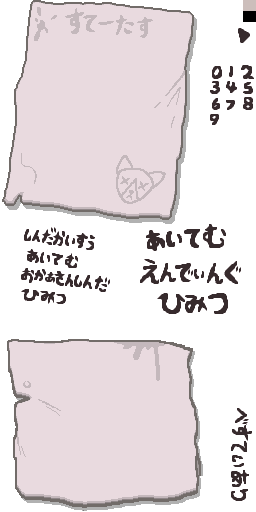 すてーたす
0 1 2
3 4 5
6 7 8
9
しんだかいすう
あいてむ
おかあさんしんだ
ひみつ
あいてむ
えんでぃんぐ
ひみつ